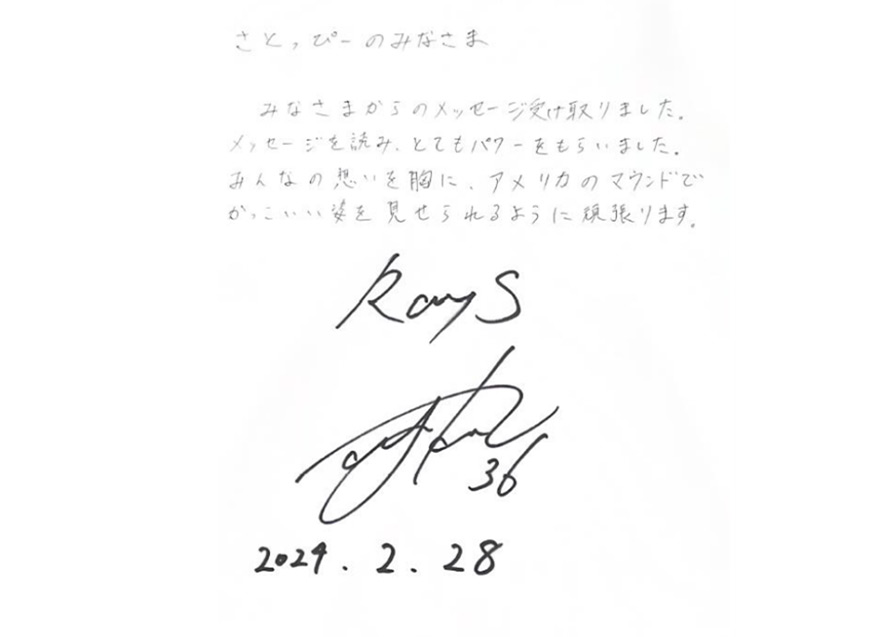 さとっぴーのみなさま
みなさまからのメッセージ受け取りました。
メッセージを読み、とてもパワーをもらいました。
みんなの想いを胸に、アメリカのマウンドで
かっこいい姿を見せられるように頑張ります。
Rays
36
2024.2.28